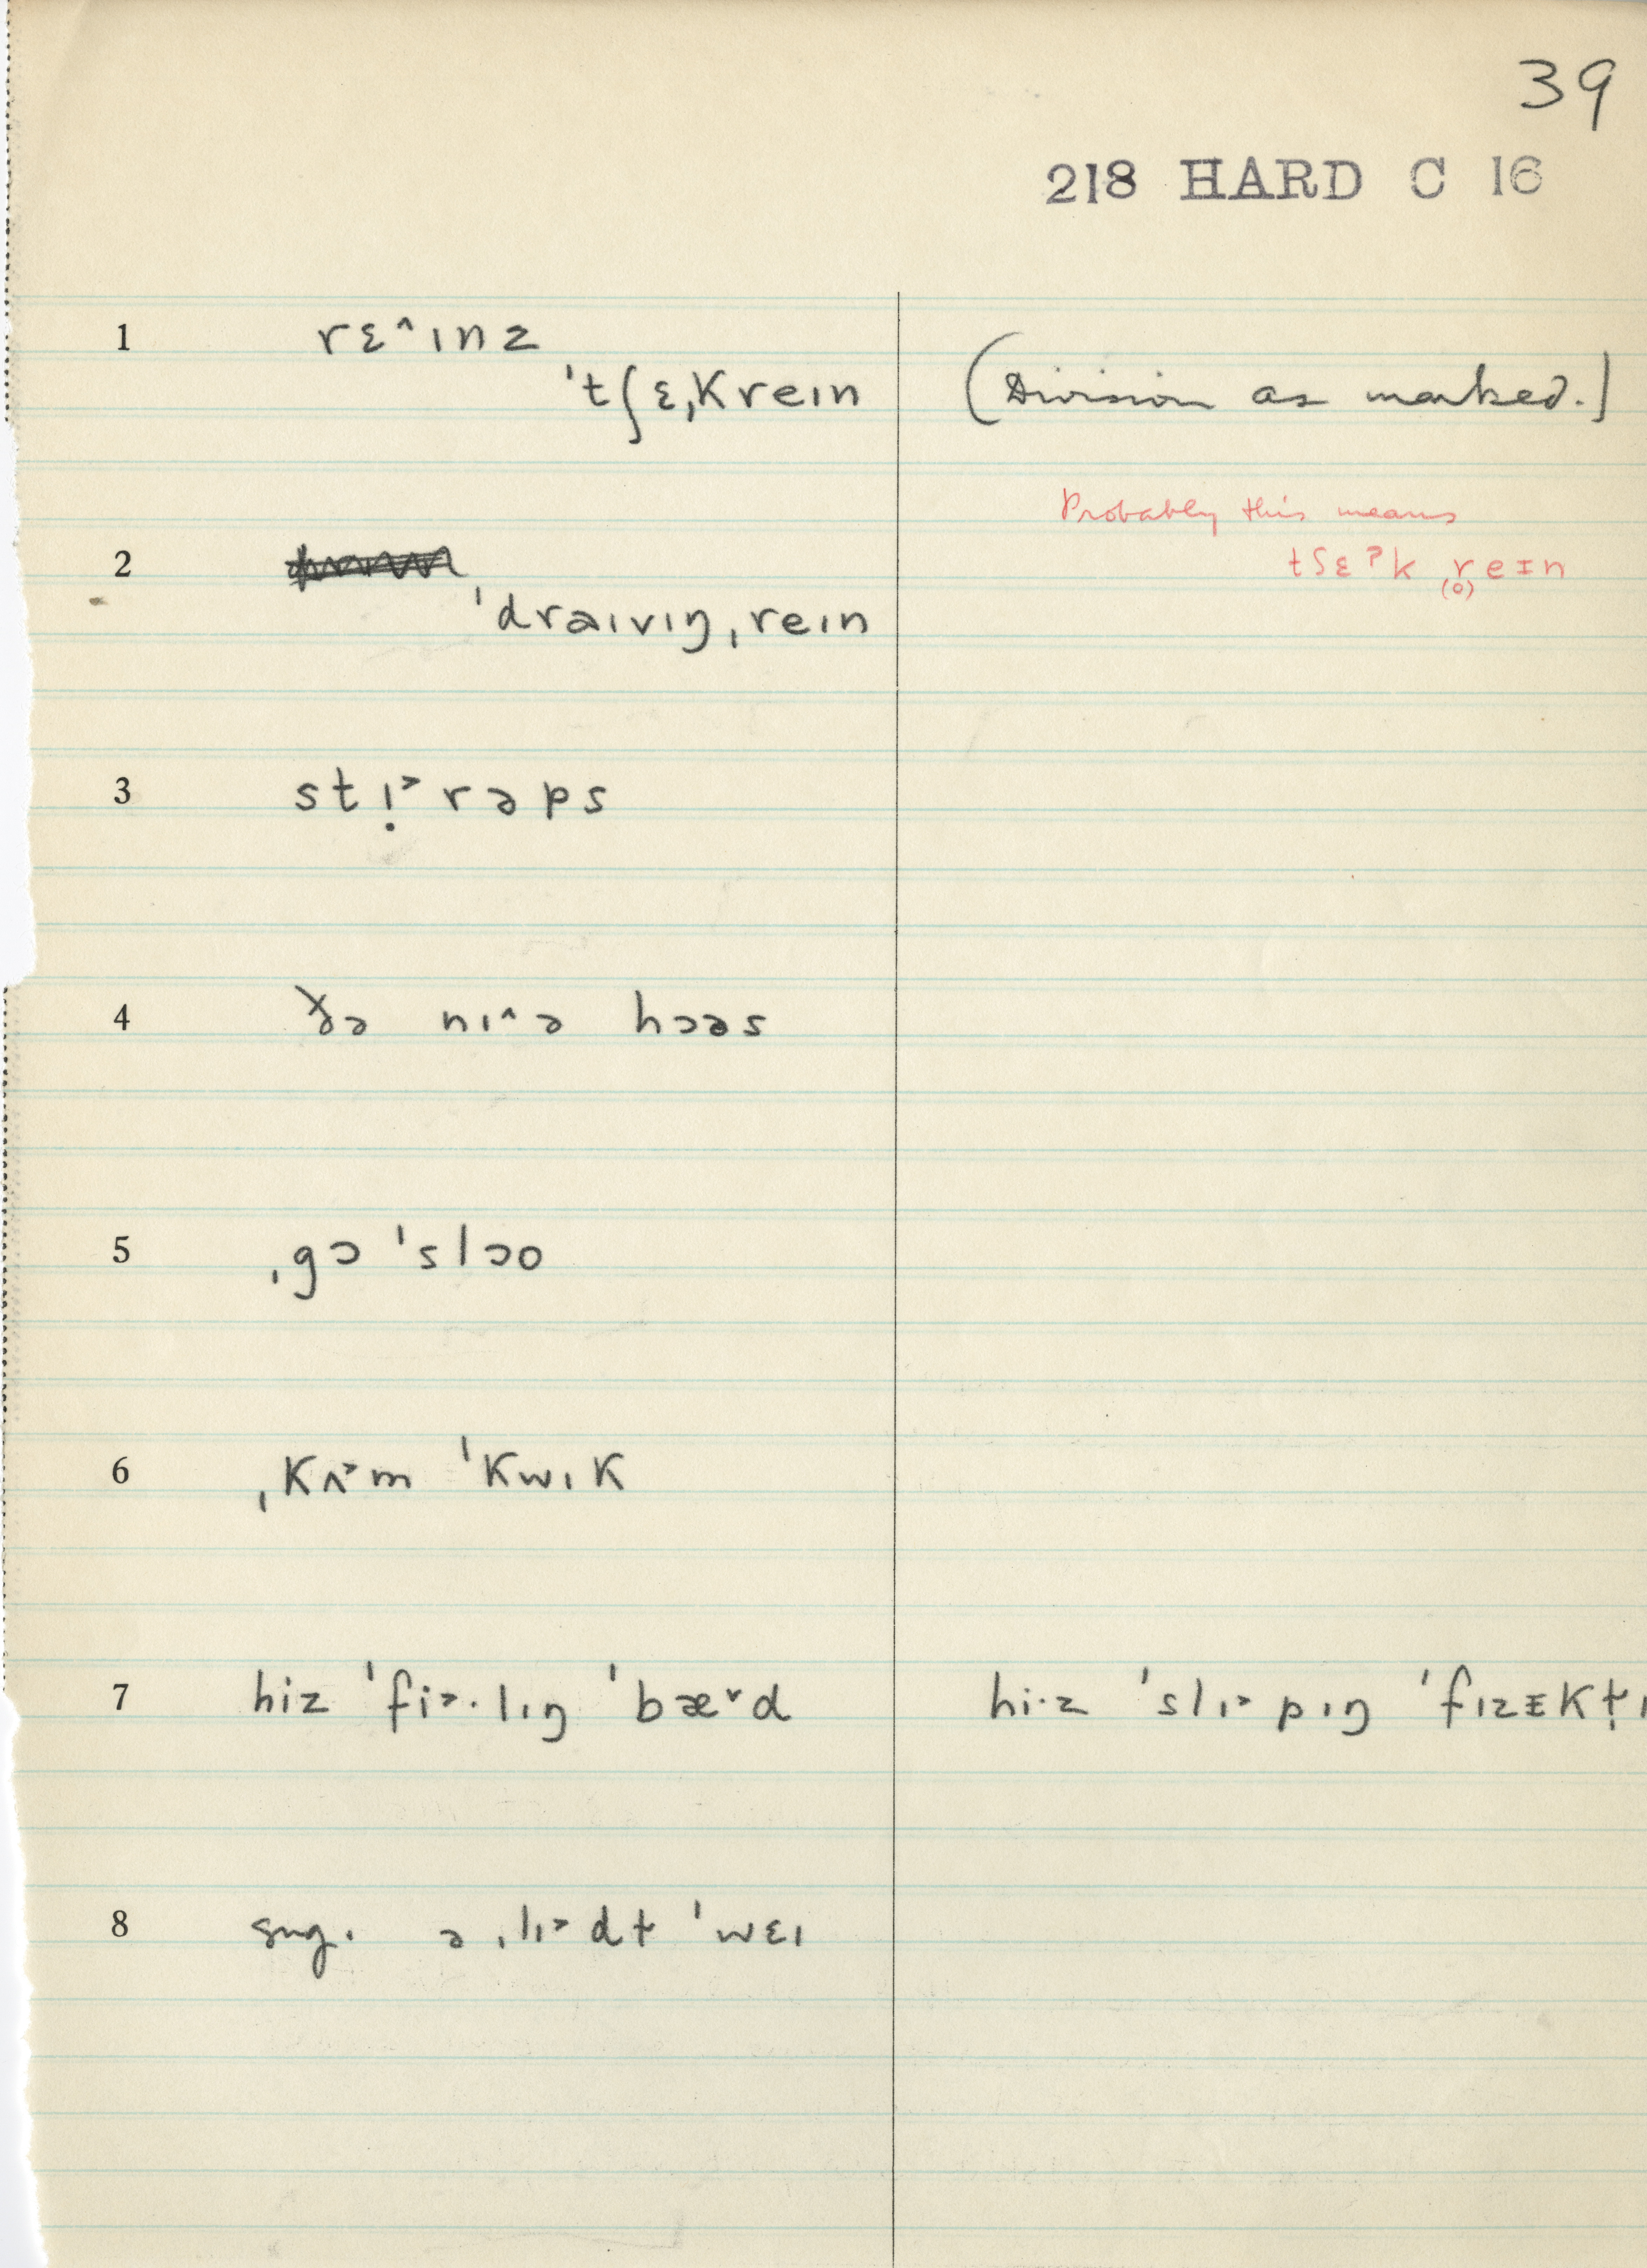 39
218 HARD C 16
1 rɛ˄ɪnz
ˈtʃɛˌkreɪn (Division as marked.)
Probably this means
tʃɛˀk r̥(o)eɪn
2
ˈdraɪvɪŋˌreɪn
3 stɪ̣˃rəps
4 ðə nɪ˄ə hɔəs
5 ˌgɔ ˈslɔo
6 ˌkʌ˃m ˈkwɪk
7 hiz ˈfi˃·lɪŋ ˈbæ˅d hi·z ˈslɪ˃pɪŋ ˈfɪzɛkt̬ɪ
8 sug. ə ˌlɪ˃dt̬ ˈwɛɪ